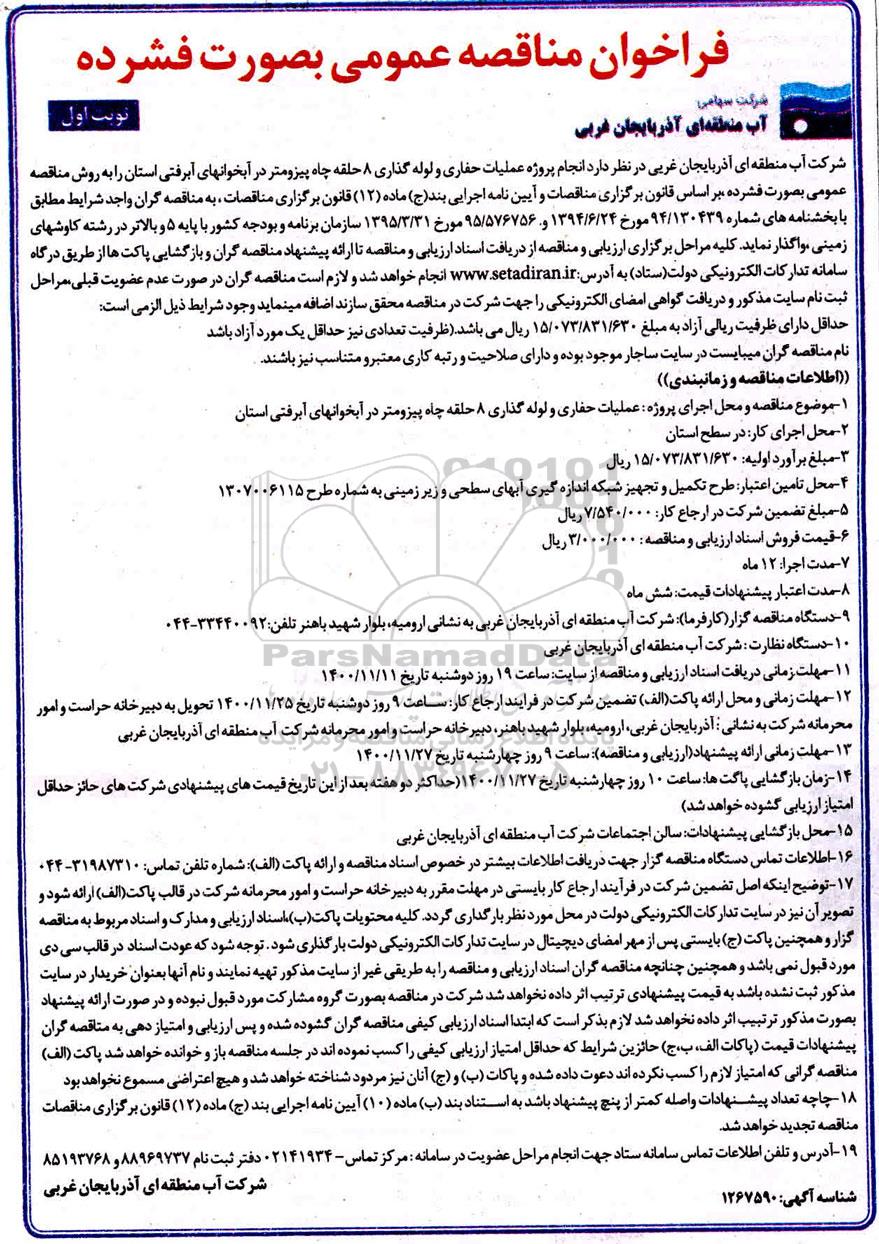 فراخوان مناقصه عمومی بصورت فشرده
شرکت سهامی
آب منطقه‌ای آذربایجان غربی
نوبت اول
شرکت آب منطقه ای آذربایجان غربی در نظر دارد انجام پروژه عملیات حفاری و لوله گذاری ۸ حلقه چاه پیزومتر در آبخوانهای آبرفتی استان را به روش مناقصه
عمومی بصورت فشرده ،بر اساس قانون برگزاری مناقصات و آیین نامه اجرایی بند(ج) ماده (۱۲) قانون برگزاری مناقصات ، به مناقصه گران واجد شرایط مطابق
با بخشنامه های شماره ۹۴/۱۳۰۴۳۹ مورخ ۱۳۹۴/۶/۲۴ و. ۹۵/۵۷۶۷۵۶ مورخ ۱۳۹۵/۳/۳۱ سازمان برنامه و بودجه کشور با پایه ۵ و بالاتر در رشته کاوشهای
زمینی ،واگذار نماید. کلیه مراحل برگزاری ارزیابی و مناقصه از دریافت اسناد ارزیابی و مناقصه تا ارائه پیشنهاد مناقصه گران و بازگشایی پاکت ها از طریق درگاه
سامانه تدارکات الکترونیکی دولت(ستاد) به آدرس:www.setadiran.ir انجام خواهد شد و لازم است مناقصه گران در صورت عدم عضویت قبلی،مراحل
ثبت نام سایت مذکور و دریافت گواهی امضای الکترونیکی را جهت شرکت در مناقصه محقق سازند اضافه مینماید وجود شرایط ذیل الزمی است:
حداقل دارای ظرفیت ریالی آزاد به مبلغ ۱۵/۰۷۳/۸۳۱/۶۳۰ ریال می باشد.(ظرفیت تعدادی نیز حداقل یک مورد آزاد باشد
نام مناقصه گران میبایست در سایت ساجار موجود بوده و دارای صلاحیت و رتبه کاری معتبرو متناسب نیز باشند.
((اطلاعات مناقصه و زمانبندی))
۱-موضوع مناقصه و محل اجرای پروژه : عملیات حفاری و لوله گذاری ۸ حلقه چاه پیزومتر در آبخوانهای آبرفتی استان
۲-محل اجرای کار: در سطح استان
۳-مبلغ برآورد اولیه: ۱۵/۰۷۳/۸۳۱/۶۳۰ ریال
۴-محل تامین اعتبار: طرح تکمیل و تجهیز شبکه اندازه گیری آبهای سطحی و زیر زمینی به شماره طرح ۱۳۰۷۰۰۶۱۱۵
۵-مبلغ تضمین شرکت در ارجاع کار: ۷/۵۴۰/۰۰۰ ریال
۶-قیمت فروش اسناد ارزیابی و مناقصه : ۳/۰۰۰/۰۰۰ ریال
۷-مدت اجرا: ۱۲ ماه
۸-مدت اعتبار پیشنهادات قیمت: شش ماه
۹-دستگاه مناقصه گزار(کارفرما): شرکت آب منطقه ای آذربایجان غربی به نشانی ارومیه، بلوار شهید باهنر تلفن:۳۳۴۴۰۰۹۲-۰۴۴
۱۰-دستگاه نظارت : شرکت آب منطقه ای آذربایجان غربی
ParsNamadData
۱۱-مهلت زمانی دریافت اسناد ارزیابی و مناقصه از سایت: ساعت ۱۹ روز دوشنبه تاریخ ۱۴۰۰/۱۱/۱۱
۱۲-مهلت زمانی و محل ارائه پاکت(الف) تضمین شرکت در فرایند ارجاع کار: ساعت ۹ روز دوشنبه تاریخ ۱۴۰۰/۱۱/۲۵ تحویل به دبیرخانه حراست و امور
محرمانه شرکت به نشانی : آذربایجان غربی، ارومیه، بلوار شهید باهنر، دبیرخانه حراست و امور محرمانه شرکت آب منطقه ای آذربایجان غربی
پایگاه اطلاع رسانی مناقصه و مزایده
۱۳-مهلت زمانی ارائه پیشنهاد(ارزیابی و مناقصه): ساعت ۹ روز چهارشنبه تاریخ ۱۴۰۰/۱۱/۲۷
۱۴-زمان بازگشایی پاگت ها: ساعت ۱۰ روز چهارشنبه تاریخ ۱۴۰۰/۱۱/۲۷(حداکثر دو هفته بعد از این تاریخ قیمت های پیشنهادی شرکت های حائز حداقل
امتیاز ارزیابی گشوده خواهد شد)
۱۵-محل بازگشایی پیشنهادات: سالن اجتماعات شرکت آب منطقه ای آذربایجان غربی
۱۶-اطلاعات تماس دستگاه مناقصه گزار جهت دریافت اطلاعات بیشتر در خصوص اسناد مناقصه و ارائه پاکت (الف): شماره تلفن تماس: ۳۱۹۸۷۳۱۰-۰۴۴
۱۷-توضیح اینکه اصل تضمین شرکت در فرآیند ارجاع کار بایستی در مهلت مقرر به دبیرخانه حراست و امور محرمانه شرکت در قالب پاکت(الف) ارائه شود و
تصویر آن نیز در سایت تدارکات الکترونیکی دولت در محل مورد نظر بارگذاری گردد. کلیه محتویات پاکت(ب)،اسناد ارزیابی و مدارک و اسناد مربوط به مناقصه
گزار و همچنین پاکت (ج) بایستی پس از مهر امضای دیجیتال در سایت تدارکات الکترونیکی دولت بارگذاری شود . توجه شود که عودت اسناد در قالب سی دی
مورد قبول نمی باشد و همچنین چنانچه مناقصه گران اسناد ارزیابی و مناقصه را به طریقی غیر از سایت مذکور تهیه نمایند و نام آنها بعنوان خریدار در سایت
مذکور ثبت نشده باشد به قیمت پیشنهادی ترتیب اثر داده نخواهد شد شرکت در مناقصه بصورت گروه مشارکت مورد قبول نبوده و در صورت ارائه پیشنهاد
بصورت مذکور ترتبیب اثر داده نخواهد شد لازم بذکر است که ابتدا اسناد ارزیابی کیفی مناقصه گران گشوده شده و پس ارزیابی و امتیاز دهی به متاقصه گران
پیشنهادات قیمت (پاکات الف، ب،ج) حائزین شرایط که حداقل امتیاز ارزیابی کیفی را کسب نموده اند در جلسه مناقصه باز و خوانده خواهد شد پاکت (الف)
مناقصه گرانی که امتیاز لازم را کسب نکرده اند دعوت داده شده و پاکات (ب) و (ج) آنان نیز مردود شناخته خواهد شد و هیچ اعتراضی مسموع نخواهد بود
۱۸-چاچه تعداد پیشنهادات واصله کمتر از پنچ پیشنهاد باشد به استناد بند (ب) ماده (۱۰) آیین نامه اجرایی بند (ج) ماده (۱۲) قانون برگزاری مناقصات
مناقصه تجدید خواهد شد.
۱۹-آدرس و تلفن اطلاعات تماس سامانه ستاد جهت انجام مراحل عضویت در سامانه : مرکز تماس-۰۲۱۴۱۹۳۴ دفتر ثبت نام ۸۸۹۶۹۷۳۷ و ۸۵۱۹۳۷۶۸
شرکت آب منطقه ای آذربایجان غربی
شناسه آگهی: ۱۲۶۷۵۹۰